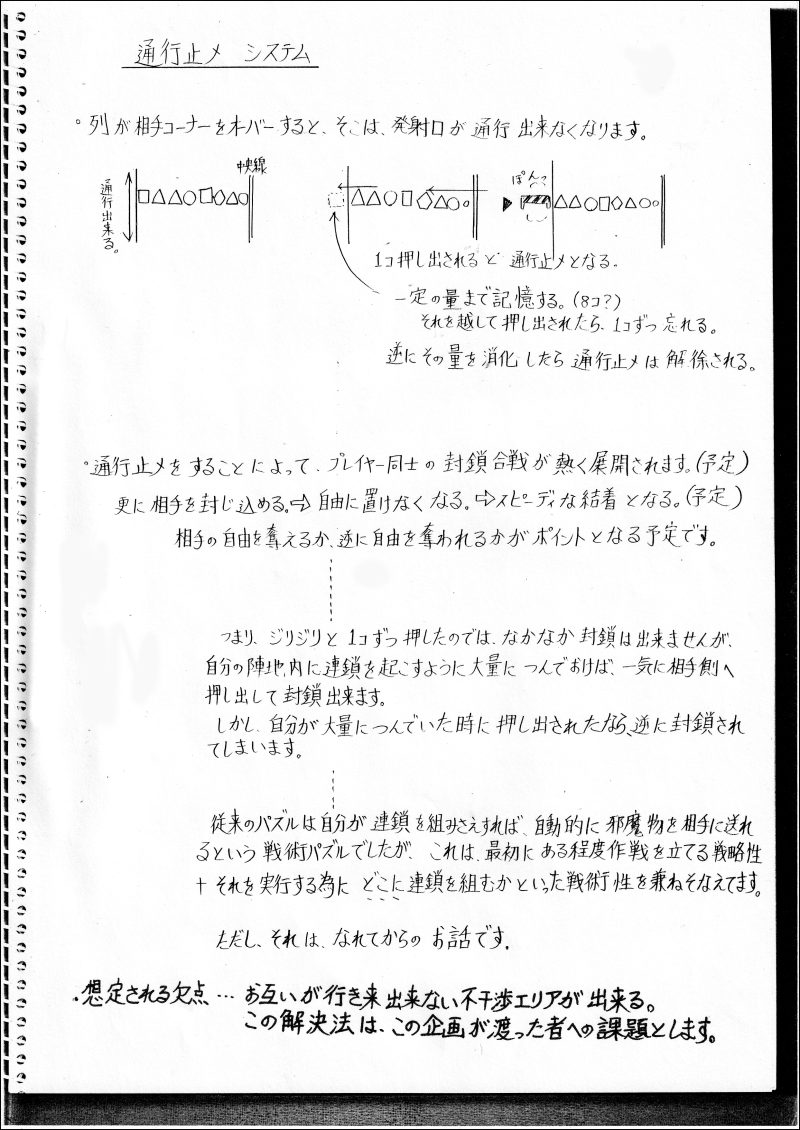 通行止メ システム
。列が相手コーナーをオーバーすると、そこは、発射口が通行出来なくなります。
通行出来る。
中央線
ぽんっ
1コ押し出されると通行止メとなる。
一定の量まで記憶する。(8コ?)
それを越して押し出されたら、1コずつ忘れる。
逆にその量を消化したら通行止メは解除される。
。通行止メをすることによって、プレイヤー同士の封鎖合戦が熱く展開されます。(予定)
更に相手を封じ込める。⇨自由に置けなくなる。⇨スピーディな結着となる。(予定)
相手の自由を奪えるか、逆に自由を奪われるかがポイントとなる予定です。
つまり、ジリジリと1コずつ押したのでは、なかなか封鎖は出来ませんが、
自分の陣地内に連鎖を起こすように大量につんでおけば、一気に相手側へ
押し出して封鎖出来ます。
しかし、自分が大量につんでいた時に押し出されたなら、逆に封鎖され
てしまいます。
従来のパズルは自分が連鎖を組みさえすれば、自動的に邪魔物を相手に送れ
るという戦術パズルでしたが、これは、最初にある程度作戦を立てる戦略性
+それを実行する為にどこに連鎖を組むかといった戦術性を兼ねそなえてます。
ただし、それは、なれてからのお話です。
・想定される欠点…お互いが行き来出来ない不干渉エリアが出来る。
この解決法は、この企画が渡った者への課題とします。